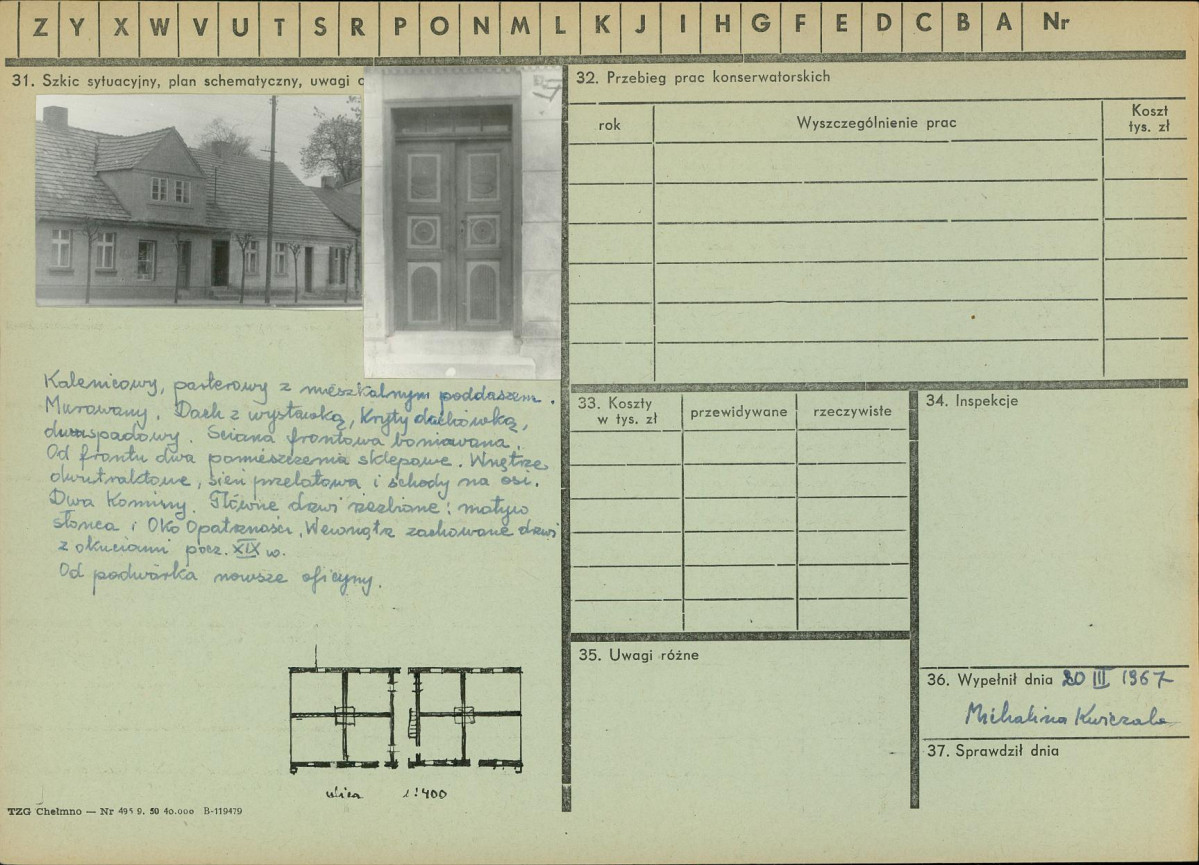 Z Y X W V U T S R P O N M L K J I H G F E D C B A Nr
31. Szkic sytuacyjny, plan schematyczny, uwagi
32. Przebieg prac konserwatorskich
rok
Wyszczególnienie prac
Koszt
tys. zł
Kalenicowy, parterowy z mieszkalnym poddaszem.
Murowany. Dach z wystawką, kryty dachówką,
dwuspadowy. Ściana frontowa boniowana.
Od frontu dwa pomieszczenia sklepowe. Wnętrze
dwutraktowe, sień przelotowa i schody na osi.
Dwa kominy. Główne drzwi rzeźbione: motyw
słońca i Oko Opatrzności, Wewnątrz zachowane drzwi
z okuciami pocz. XIX w.
Od podwórka nowsze oficyny.
ulica 1:400
TZG Chełmno — Nr 495 9. 50 40.000 B-119479
33. Koszty
w tys. zł
przewidywane
rzeczywiste
34. Inspekcje
35. Uwagi różne
36. Wypełnił dnia 20 III 1967
Michalina
37. Sprawdził dnia